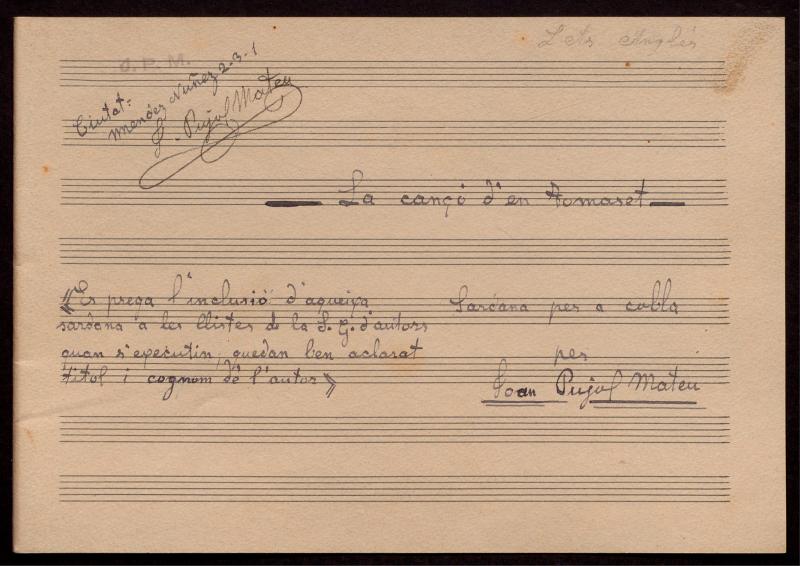 J. P. M.
Ciutat=
Menéez Nuñez 2-3-1
J. Pujol Mateu
La cançó d'en Tomaset
《Es prega l'inclusió d'aqueixa
sardana a les llistes de la S. G. d'autors
quan s'executin, quedan ben aclarat
títol i cognom de l'autor》
Sardana per a cobla
per
Joan Pujol Mateu
Anglés